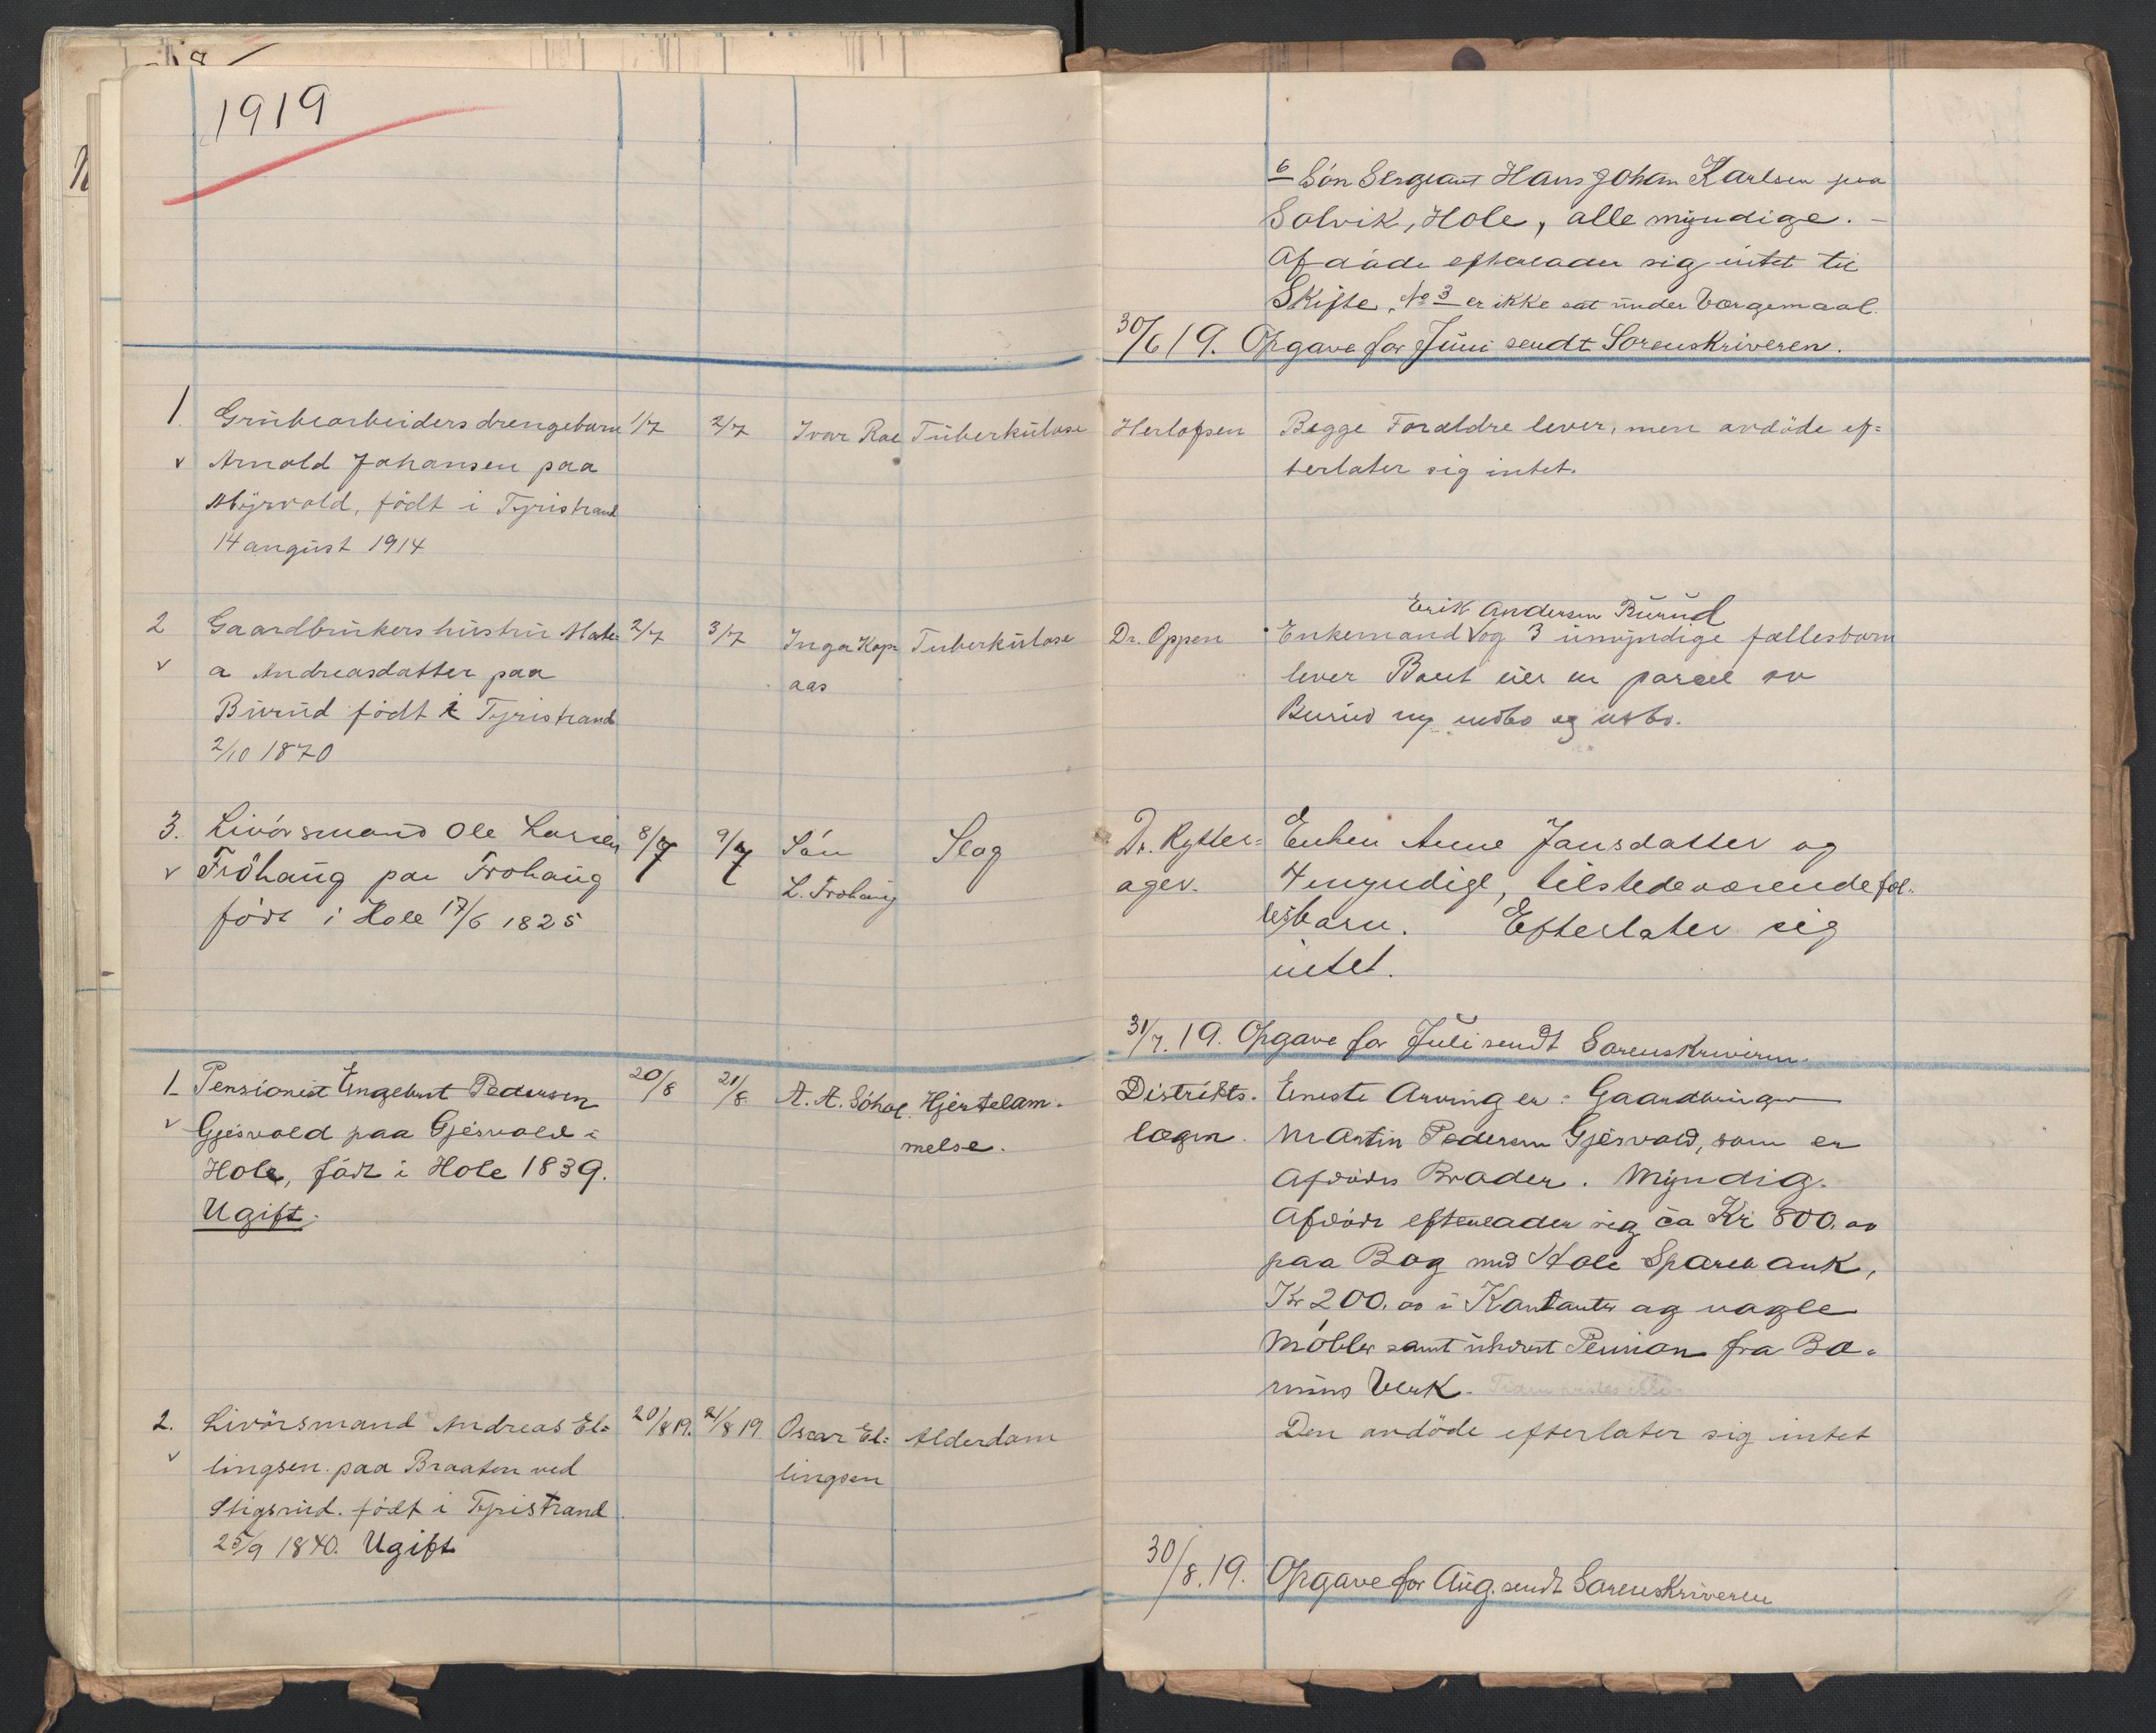 1919
6 Sön Sergeant Hans Johan Karlsen paa
Solvik, Hole, alle myndige. –
Afdöde efterlader sig intet til
Skifte. No 3 er ikke sat under Værgemaal.
30/6 19. Opgave for Juni sendt Sorenskriveren.
1. Grubearbeiders drengebarn 1/7 2/7 Ivar Roe Tuberkulose Herlofsen Begge Forældre lever, men avdöde ef=
v Arnold Johansen paa terlater sig intet.
Myrvold, födt i Tyristrand
14 august 1914
Erik Andersen Burud
2 Gaardbrukers hustru Mate= 2/7 3/7 Inga Kops Tuberkulose Dr. Oppen Enkemand og 3 umyndige fællesbarn
v a Andreasdatter paa aas lever Boet eier en parcel av
Burud födt i Tyristrand Burud ny indbo og utbo.
2/10 1870
3. Livörsmand Ole Larsen 8/7 9/7 Sön Slag Dr. Rytter= Enken Anne Jansdatter og
v Fröhaug paa Frohaug L. Frohaug ager. 4 myndige, tilstedeværende fæl.
födt i Hole 17/6 1825 lesbarn. Efterlater sig
intet.
31/7. 19. Opgave for Juli sendt Sorenskriveren.
1 Pensionist Engebret Pedersen 20/8 21/8. A. A. Söhol Hjertelam- Distrikts- Eneste Arving er: Gaardbruger
v Gjesvold paa Gjesvold i melse. lægen. Martin Pedersen Gjesvold, som er
Hole, födt i Hole 1839. Afdödes Broder. Myndig.
Ugift. Afdöde efterlader sig ca Kr 800.00
paa Bog med Hole Sparebank,
Kr 200.00 i Kontanter og nogle
Möbler samt Pension fra Bæ-
rums Verk.
2. Livörsmand Andreas El= 20/8 19. 21/8 19 Oscar El= Alderdom Den avdöde efterlater sig intet
v lingsen paa Braaten ved lingsen
Stigsrud. födt i Tyristrand
25/9 1840. Ugift
30/8. 19. Opgave for Aug. sendt Sorenskriveren